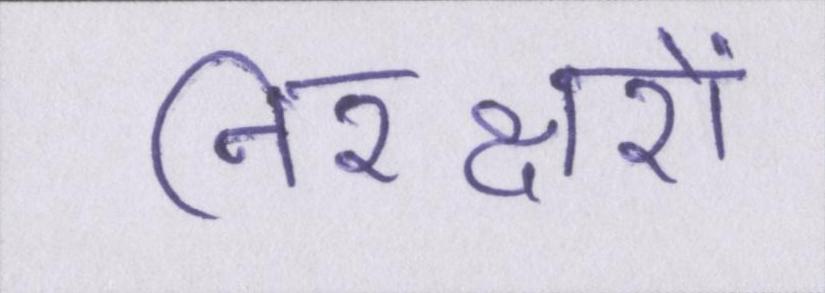 निरक्षरों